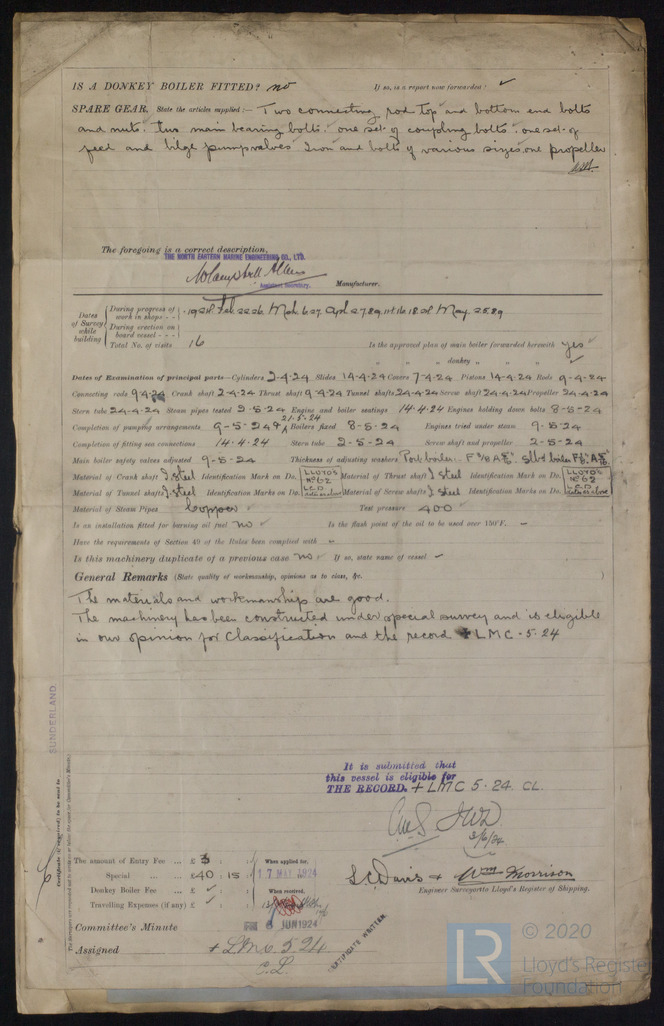 IS A DONKEY BOILER FITTED? no If so, is a report now forwarded? ✓
SPARE GEAR. State the articles supplied:— Two connecting rod top and bottom end bolts
and nuts. two main bearing bolts. one set of coupling bolts. one set of
feed and bilge pump valves Iron and bolts of various sizes, one propeller
The foregoing is a correct description,
THE NORTH EASTERN MARINE ENGINEERING CO., LTD.
Assistant Secretary. Manufacturer.
Dates of Survey while building
During progress of work in shops - -
During erection on board vessel - - -
Total No. of visits 16
Is the approved plan of main boiler forwarded herewith yes ✓
" " " donkey " " "
Dates of Examination of principal parts—Cylinders 2-4-24 Slides 14-4-24 Covers 7-4-24 Pistons 14-4-24 Rods 9-4-24
Connecting rods 9-4-24 Crank shaft 2-4-24 Thrust shaft 9-4-24 Tunnel shafts 24-4-24 Screw shaft 24-4-24 Propeller 24-4-24
Stern tube 24-4-24 Steam pipes tested 2-5-24 Engine and boiler seatings 14-4-24 Engines holding down bolts 8-5-24
21-5-24
Completion of pumping arrangements 9-5-24 & Boilers fixed 8-5-24 Engines tried under steam 9-5-24
Completion of fitting sea connections 14-4-24 Stern tube 2-5-24 Screw shaft and propeller 2-5-24
Main boiler safety valves adjusted 9-5-24 Thickness of adjusting washers Port boiler
Material of Crank shaft I. Steel Identification Mark on Do. Material of Thrust shaft I Steel Identification Mark on Do.
LLOYD'S No 62 LLOYD'S No 62
Material of Tunnel shafts I. Steel Identification Marks on Do. Material of Screw shafts I Steel Identification Marks on Do.
Material of Steam Pipes Copper ✓ Test pressure 400 ✓
Is an installation fitted for burning oil fuel no ✓ Is the flash point of the oil to be used over 150°F. –
Have the requirements of Section 49 of the Rules been complied with –
Is this machinery duplicate of a previous case no ✓ If so, state name of vessel ✓
General Remarks (State quality of workmanship, opinions as to class, &c. )
The materials and workmanship are good.
The machinery has been constructed under special survey and is eligible
in our opinion for Classification and the record + LMC · 5 · 24
SUNDERLAND.
It is submitted that
this vessel is eligible for
THE RECORD. + LMC 5 · 24. CL.
3/6/24
The amount of Entry Fee ... £ 3 : :
Special ... £ 40 : 15 :
Donkey Boiler Fee ... £ ✓ :
Travelling Expenses (if any) £ ✓ :
When applied for,
17 MAY 1924
When received,
S.C. Davis & Wm Morrison
Engineer Surveyor to Lloyd's Register of Shipping.
Committee's Minute 6 JUN 1924
Assigned + LMC 5.24
C.L.
CERTIFICATE WRITTEN.
LR
© 2020
Lloyd's Register
Foundation